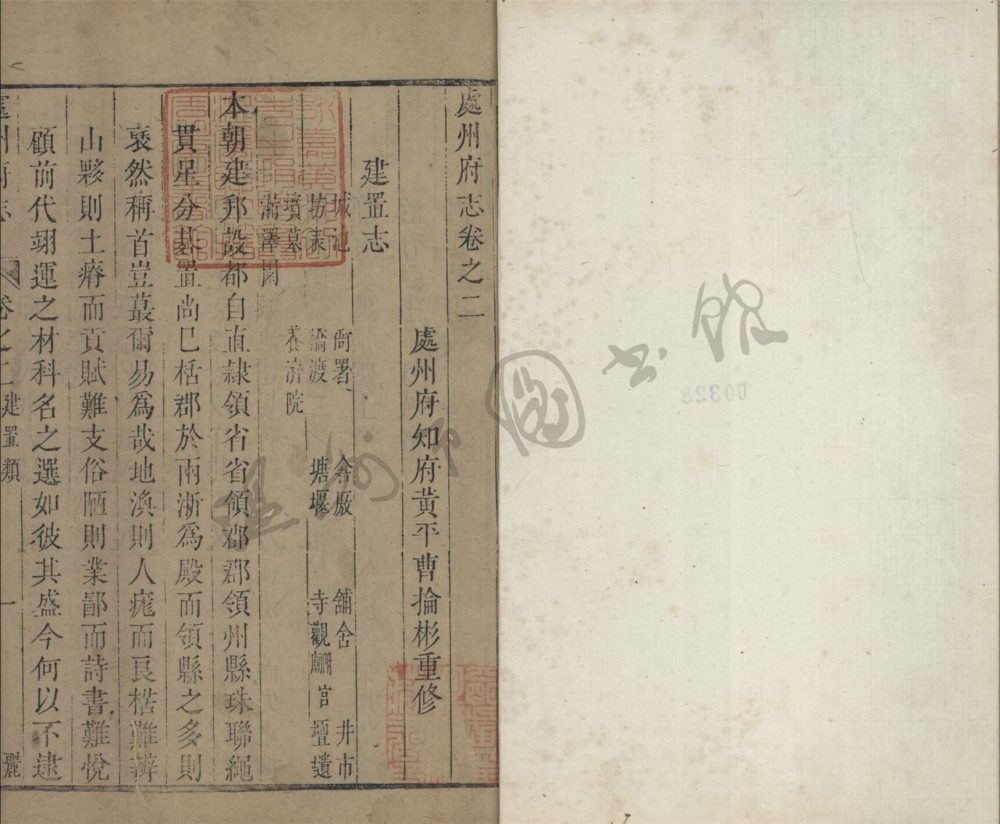 處州府志卷之二
處州府知府黃平曹掄彬重修
建置志
城池 衙署 倉廠 舖舍 井市
坊表 橋渡 塘堰 寺觀廟宫 壇遺
墳墓 養濟院
漏澤園
本朝建邦設都自直隷領省省領郡郡領州縣珠聯繩
貫星分碁置尚巳栝郡於兩浙爲殿而領縣之多則
裒然稱首豈蕞爾易爲哉地渙則人痝而良楛難辨
山夥則土瘠而貢賦難支俗陋則業鄙而詩書難悅
顧前代翊運之材科名之選如彼其盛今何以不逮
處州府志 卷之二 建置類 一 麗
温州市圖書館
00328